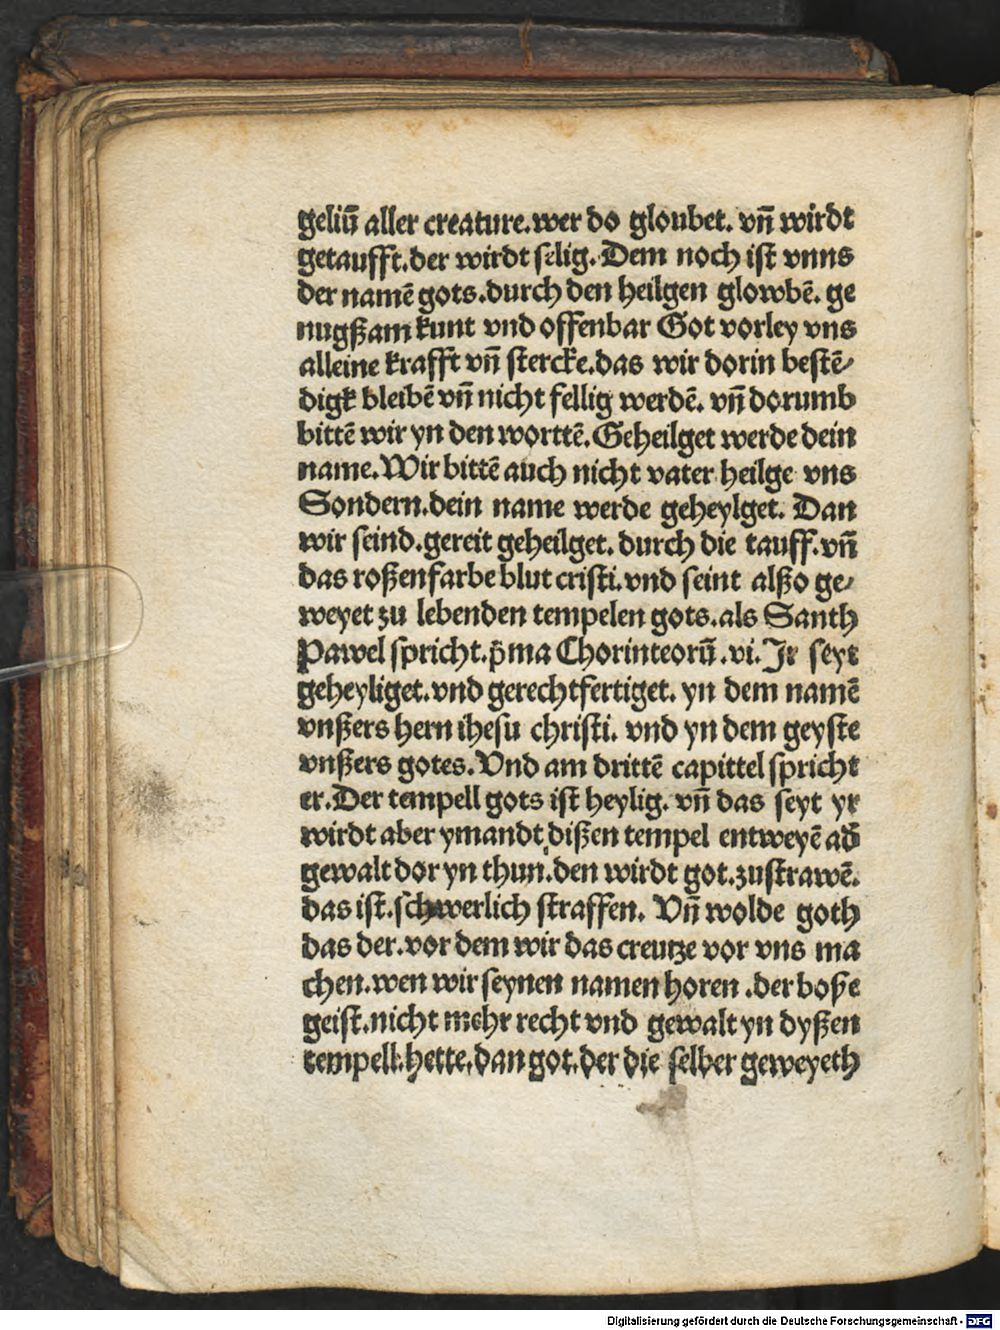 geliū aller creature.wer do gloubet. vn̄ wirdt
getaufft.der wirdt selig.Dem noch ist vnns
der namē gots.durch den heilgen glowbē. ge
nugßam kunt vnd offenbar Got vorley vns
alleine krafft vn̄ stercke.das wir dorin bestē⸗
digk bleibē vn̄ nicht fellig werdē. vn̄ dorumb
bittē wir yn den worttē.Geheilget werde dein
name.Wir bittē auch nicht vater heilge vns
Sondern.dein name werde geheylget. Dan
wir seind.gereit geheilget. durch die tauff.vn̄
das roßenfarbe blut cristi.vnd seint alßo ge⸗
weyet zu lebenden tempelen gots.als Santh
Pawel spricht.p̄ma Chorinteorū.vi.Ir seyt
geheyliget.vnd gerechtfertiget. yn dem namē
vnßers hern ihesu christi. vnd yn dem geyste
vnßers gotes.Vnd am drittē capittel spricht
er.Der tempell gots ist heylig. vn̄ das seyt yr
wirdt aber ymandt dißen tempel entweyē ad̄
gewalt dor yn thun.den wirdt got.zustrawē.
das ist.schwerlich straffen. Vn̄ wolde goth
das der.vor dem wir das creutze vor vns ma
chen.wen wir seynen namen horen .der boße
geist.nicht mehr recht vnd gewalt yn dyßen
tempell.hette.dan got.der die selber geweyeth
Digitalisierung gefördert durch die Deutsche Forschungsgemeinschaft - DFG